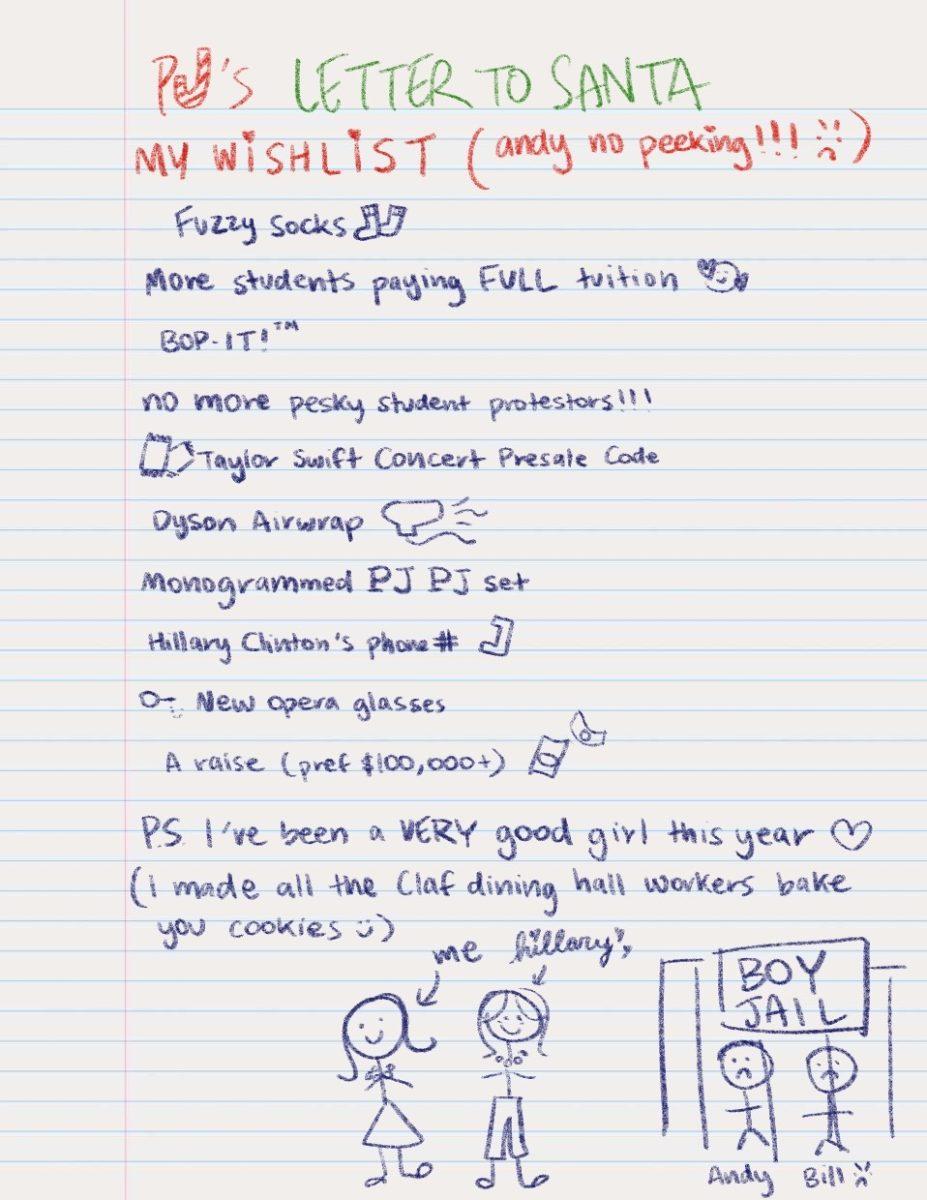 PJ's LETTER TO SANTA
MY WISHLIST (andy no peeking!!! :()
Fuzzy socks
More students paying FULL tuition
BOP-IT!™
no more pesky student protestors!!!
Taylor Swift Concert Presale Code
Dyson Airwrap
Monogrammed PJ PJ set
Hillary Clinton's phone #
New opera glasses
A raise (pref $100,000+)
P.S. I've been a VERY good girl this year ♡
(I made all the Claf dining hall workers bake
you cookies :))
me hillary
BOY
JAIL
Andy Bill